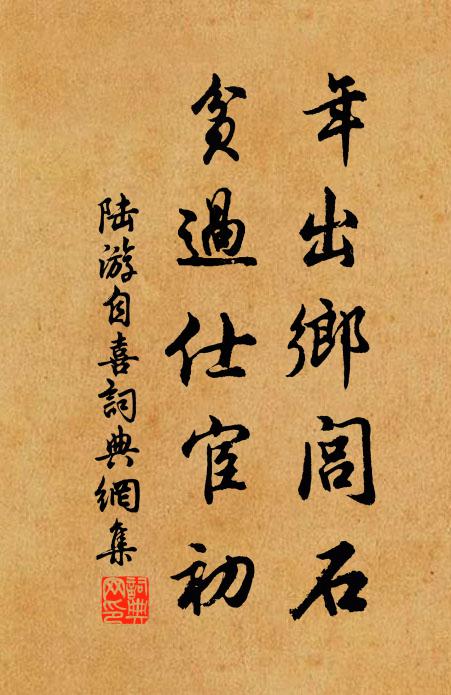 年出鄉閭石
貧過仕宦初
陸游自喜詞典網集
詞典網印